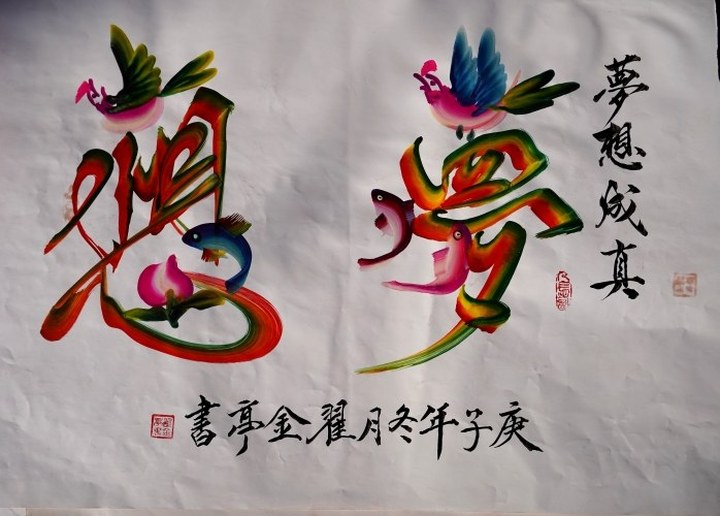 夢想成真
夢想
庚子年冬月翟金亭書